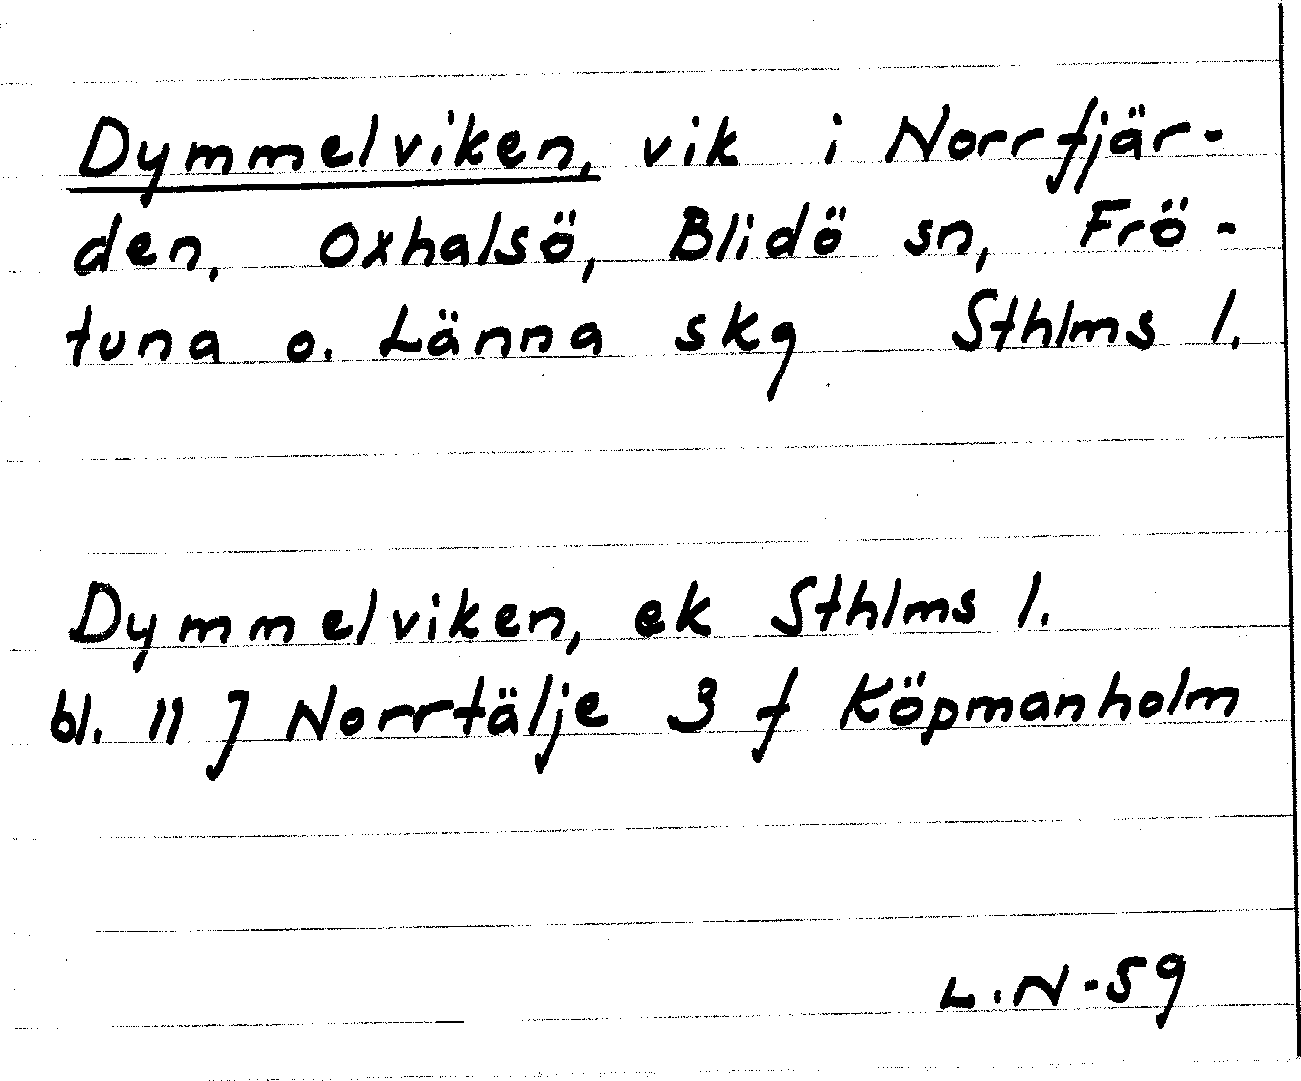 Dymmelviken, vik i Norrfjär-
den, Oxhalsö, Blidö sn, Frö-
tuna o. Länna skg Sthlms l.
Dymmelviken, ek Sthlms l.
bl. 11 J Norrtälje 3 f Köpmanholm
L.N-59